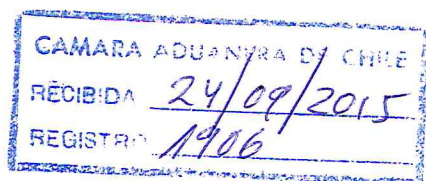 CAMARA ADUANERA DE CHILE
RECIBIDA 24/09/2015
REGISTRO 1906